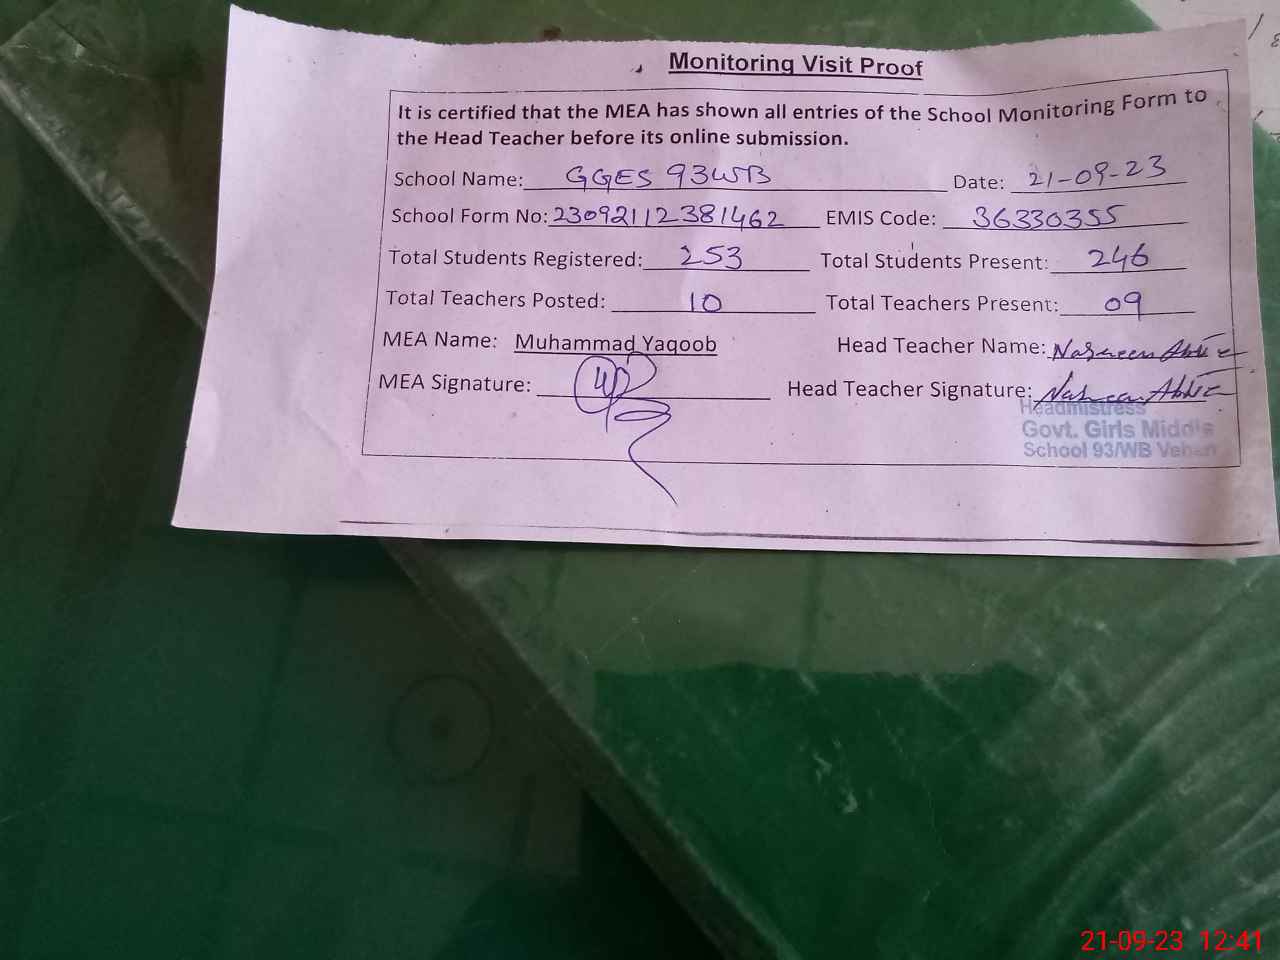 Monitoring Visit Proof
It is certified that the MEA has shown all entries of the School Monitoring Form to
the Head Teacher before its online submission.
School Name: GGES 93WB Date: 21-09-23
School Form No: 23092112381462 EMIS Code: 36330355
Total Students Registered: 253 Total Students Present: 246
Total Teachers Posted: 10 Total Teachers Present: 09
MEA Name: Muhammad Yaqoob Head Teacher Name:
MEA Signature: Head Teacher Signature:
Headmistress
Govt. Girls Middle
School 93/WB
21-09-23 12:41